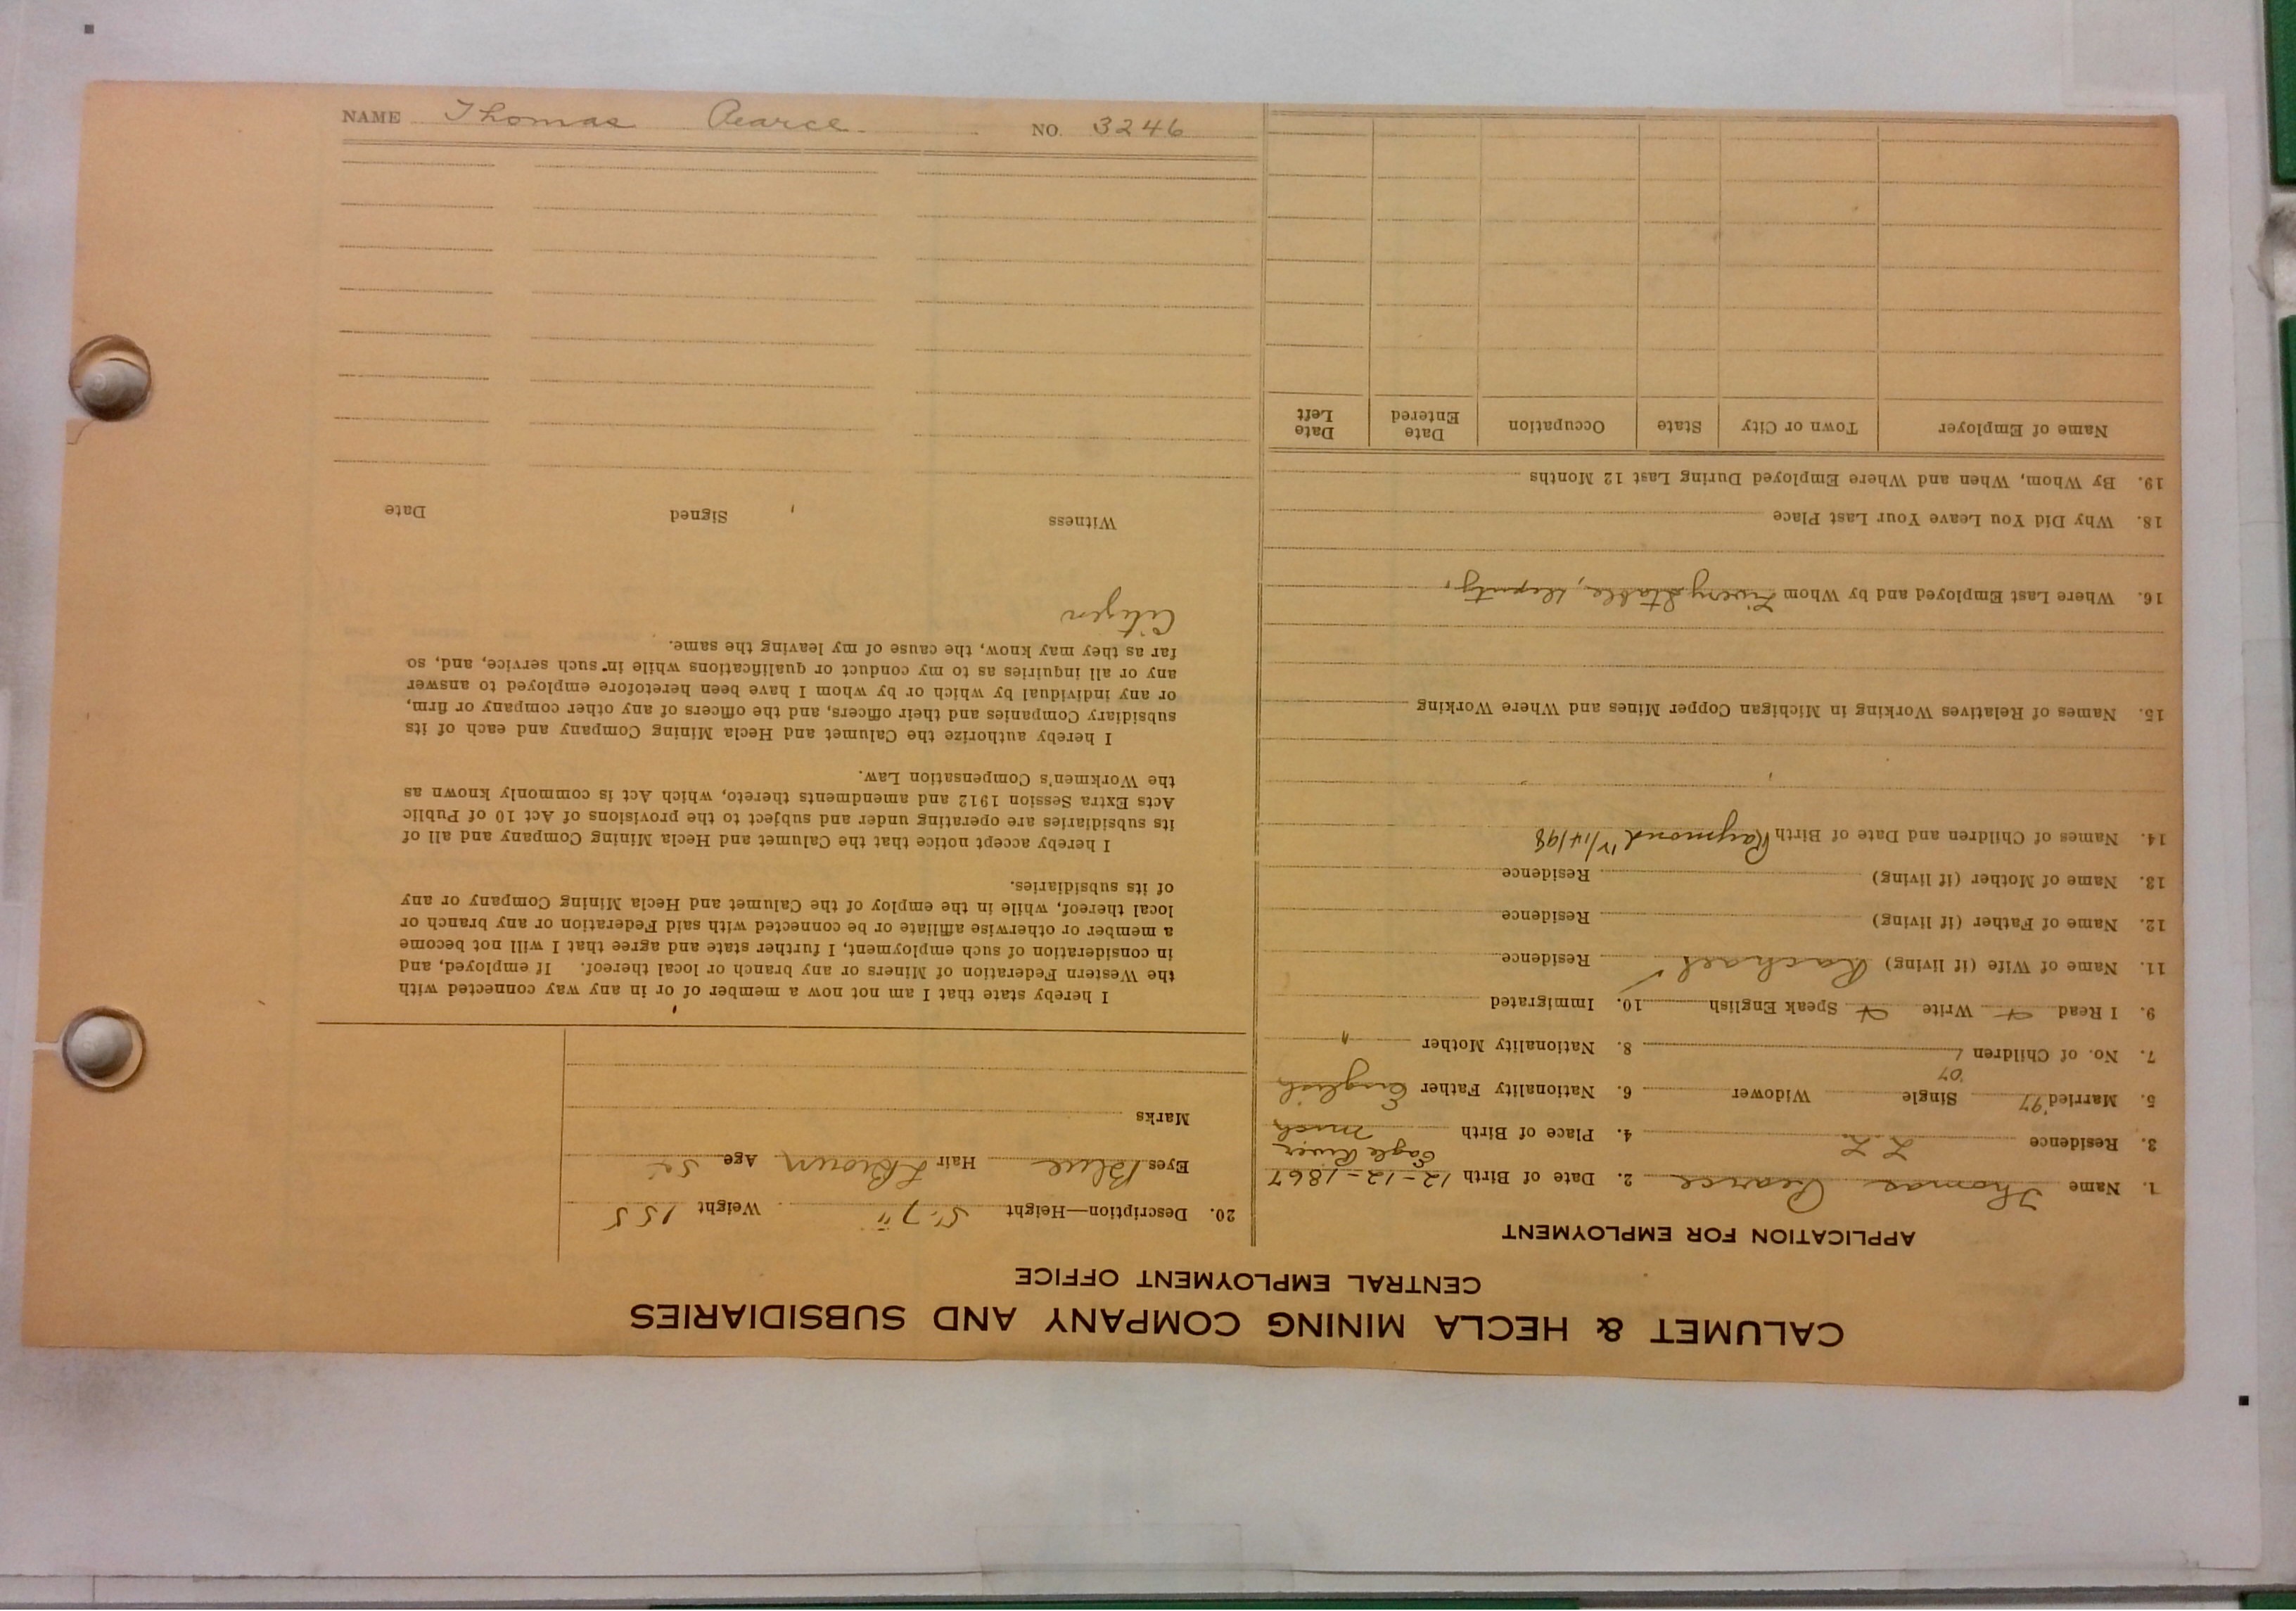 CALUMET & HECLA MINING COMPANY AND SUBSIDIARIES
CENTRAL EMPLOYMENT OFFICE
APPLICATION FOR EMPLOYMENT
1. Name Thomas Pearce 2. Date of Birth 12-12-1867
3. Residence L.L. 4. Place of Birth Eagle River Mich
5. Married '97 '07 Single Widower 6. Nationality Father English
7. No. of Children 1 8. Nationality Mother "
9. I Read Write Speak English 10. Immigrated
11. Name of Wife (if living) Rachael Residence
12. Name of Father (if living) Residence
13. Name of Mother (if living) Residence
14. Names of Children and Date of Birth Raymond
15. Names of Relatives Working in Michigan Copper Mines and Where Working
16. Where Last Employed and by Whom Livery Stable, Deputy,
18. Why Did You Leave Your Last Place
19. By Whom, When and Where Employed During Last 12 Months
Name of Employer Town or City State Occupation Date Entered Date Left
20. Description—Height 5'-7" Weight 155
Eyes Blue Hair L Brown Age
Marks
I hereby state that I am not now a member of or in any way connected with
the Western Federation of Miners or any branch or local thereof. If employed, and
in consideration of such employment, I further state and agree that I will not become
a member or otherwise affiliate or be connected with said Federation or any branch or
local thereof, while in the employ of the Calumet and Hecla Mining Company or any
of its subsidiaries.
I hereby accept notice that the Calumet and Hecla Mining Company and all of
its subsidiaries are operating under and subject to the provisions of Act 10 of Public
Acts Extra Session 1912 and amendments thereto, which Act is commonly known as
the Workmen's Compensation Law.
I hereby authorize the Calumet and Hecla Mining Company and each of its
subsidiary Companies and their officers, and the officers of any other company or firm,
or any individual by which or by whom I have been heretofore employed to answer
any or all inquiries as to my conduct or qualifications while in such service, and, so
far as they may know, the cause of my leaving the same.
Citizen
Witness Signed Date
NAME Thomas Pearce NO. 3246